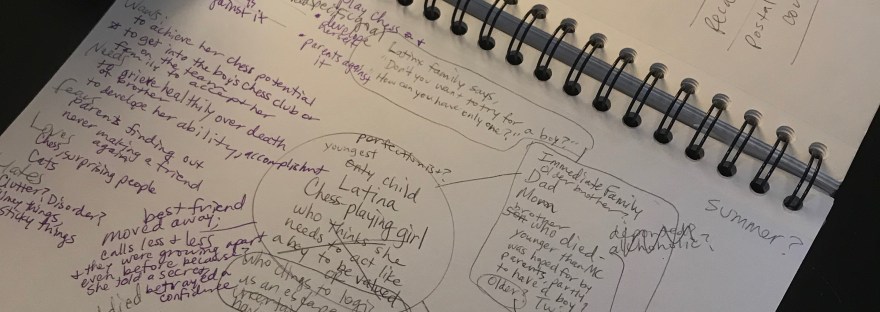 against it
play chess out
develop
herself
parents against
it
Latinx family says,
"Don't you want to try for a boy?"
How can you have only one?"
Wants:
to achieve her chess potential
to get into the boys chess club or
from on the team
family to accept her
Needs
to grieve healthily over death
of brother
to develop her ability, accomplishment
Fears
parent finding out
never making a friend
again
Loves
Chess, surprising people
Cats
clutter? Disorder?
slimy things,
sticky things
best friend
moved away,
calls less & less
& they were growing apart
even before because
she told a secret,
betrayed a
confidence
died
perfectionist?
youngest
only child
Latina
Chess playing girl
who thinks she
needs to act like
a boy to be valued
who clings to logic
as an escape
uncertain
Immediate Family
Older brother?
Dad
Mom
brother
who died.
younger than MC
was hoped for by
parents, partly
to have'd boy?
Older?
deported?
alcoholic?
summer?
Postal